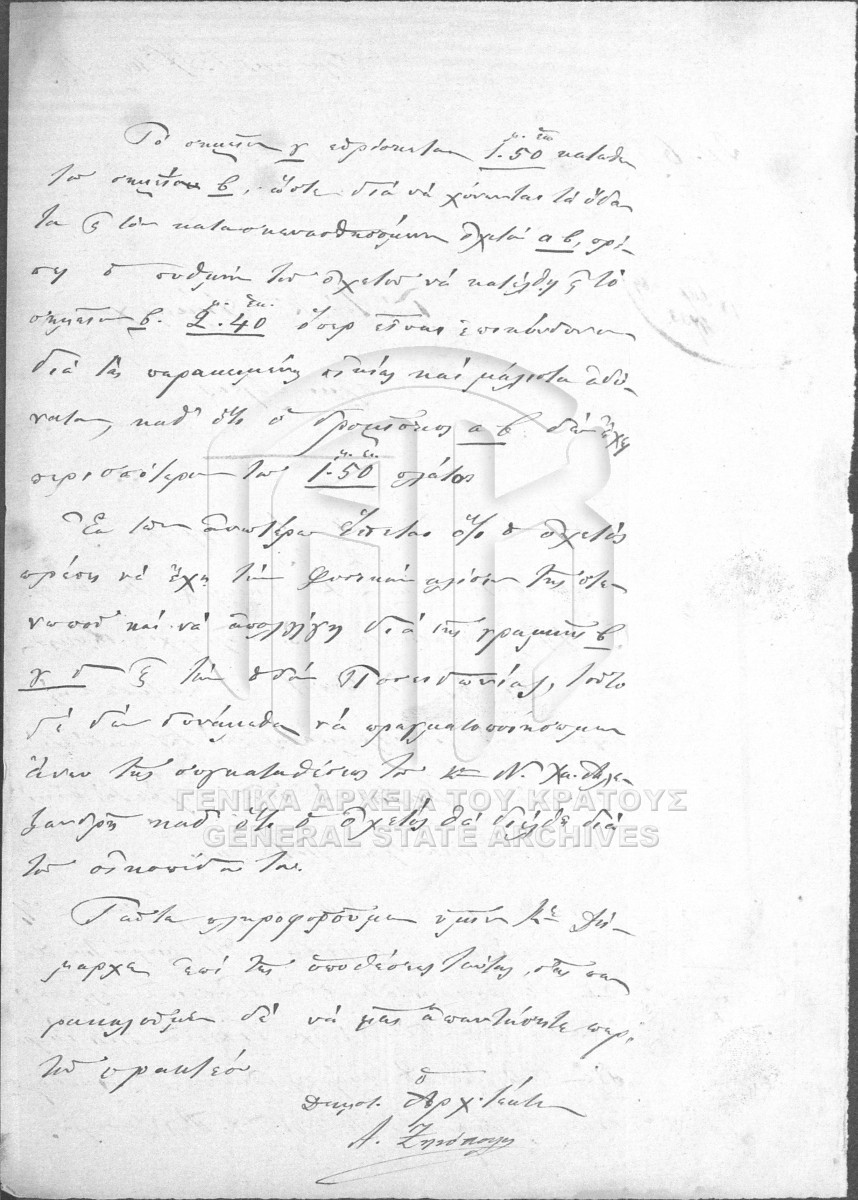 Τὸ σημεῖον γ εὑρίσκεται 1.50 κάτωθεν
τοῦ σημείου β, ὥστε διὰ νὰ χύνωνται τὰ ὕδα
τα εἰς τὸν κατασκευασθησόμενον ὀχετὸν αβ, πρέ-
πει ὁ πυθμὴν τοῦ ὀχετοῦ νὰ κατέλθῃ εἰς τὸ
σημεῖον β. 2.40 ὅπερ εἶναι ἐπικίνδυνον
διὰ τὰς παρακειμένας οἰκίας καὶ μάλιστα ἀδύ-
νατον, καθ' ὅτι ὁ δρομίσκος α β δὲν ἔχει
περισσότερον τοῦ 1.50 πλάτος
Ἐκ τῶν ἀνωτέρω ἕπεται ὅτι ὁ ὀχετὸς
πρέπει νὰ ἔχῃ τὴν φυσικὴν κλίσιν τῆς στε
νωποῦ καὶ νὰ ἀπολήγῃ διὰ τῆς γραμμῆς β
γ δ εἰς τὴν ὁδὸν Ποσειδωνίας, τοῦτο
δὲ δὲν δυνάμεθα νὰ πραγματοποιήσωμεν
ἄνευ τῆς συγκαταθέσεως τοῦ Κου Ν. Χ. Ἀλε-
ξανδρῆ καθ' ὅτι ὁ ὀχετὸς θὰ διέλθῃ διὰ
τοῦ οἰκοπέδου του.
Ταῦτα πληροφοροῦμεν ὑμῖν Κε Δή-
μαρχε ἐπὶ τῆς ὑποθέσεως ταύτης, σᾶς πα
ρακαλοῦμεν δὲ νὰ μᾶς ἀπαντήσητε περὶ
τοῦ πρακτέου
ὁ
Δημοτ. Ἀρχιτέκτων
Α.
ΓΕΝΙΚΑ ΑΡΧΕΙΑ ΤΟΥ ΚΡΑΤΟΥΣ
GENERAL STATE ARCHIVES